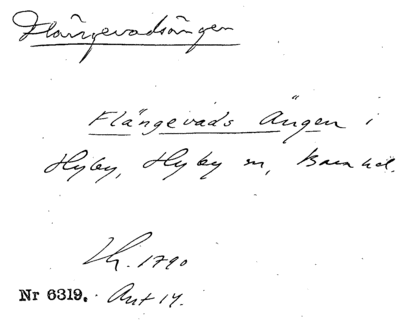 Flängevadsängen
Flängevads Ängen i
Hyby, Hyby sn, Bara hd.
Lh. 1790
Nr 6319. Akt 14.